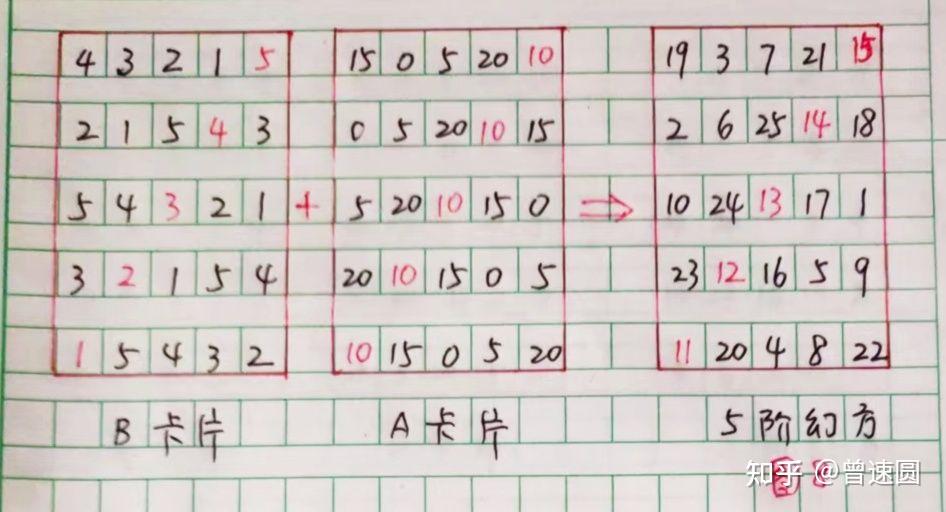 4 3 2 1 5 15 0 5 20 10 19 3 7 21 15
2 1 5 4 3 0 5 20 10 15 2 6 25 14 18
5 4 3 2 1 + 5 20 10 15 0 ⇒ 10 24 13 17 1
3 2 1 5 4 20 10 15 0 5 23 12 16 5 9
1 5 4 3 2 10 15 0 5 20 11 20 4 8 22
B 卡片 A 卡片 5 阶幻方
知乎 @曾速圆